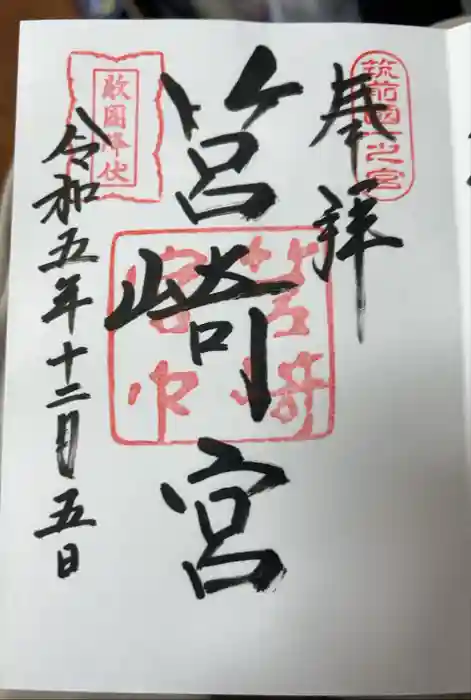 筑前國一之宮
奉拝
筥崎宮
敵國降伏
令和五年十二月五日